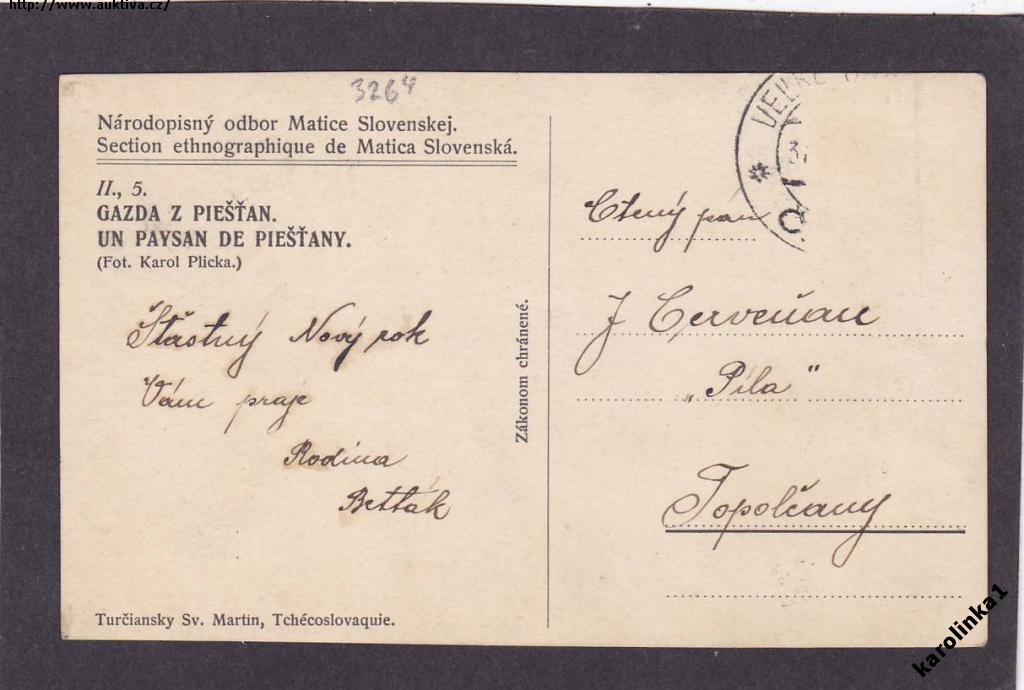 http://www.auktiva.cz/
3264
Národopisný odbor Matice Slovenskej.
Section ethnographique de Matica Slovenská.
II., 5.
GAZDA Z PIEŠŤAN.
UN PAYSAN DE PIEŠŤANY.
(Fot. Karol Plicka.)
Šťastný Nový rok
Vám praje
Rodina
Betták
Turčiansky Sv. Martin, Tchécoslovaquie.
Zákonom chránené.
VEĽKÉ
Ctený pan
J Červeňan
„Píla"
Topolčany
karolinka1